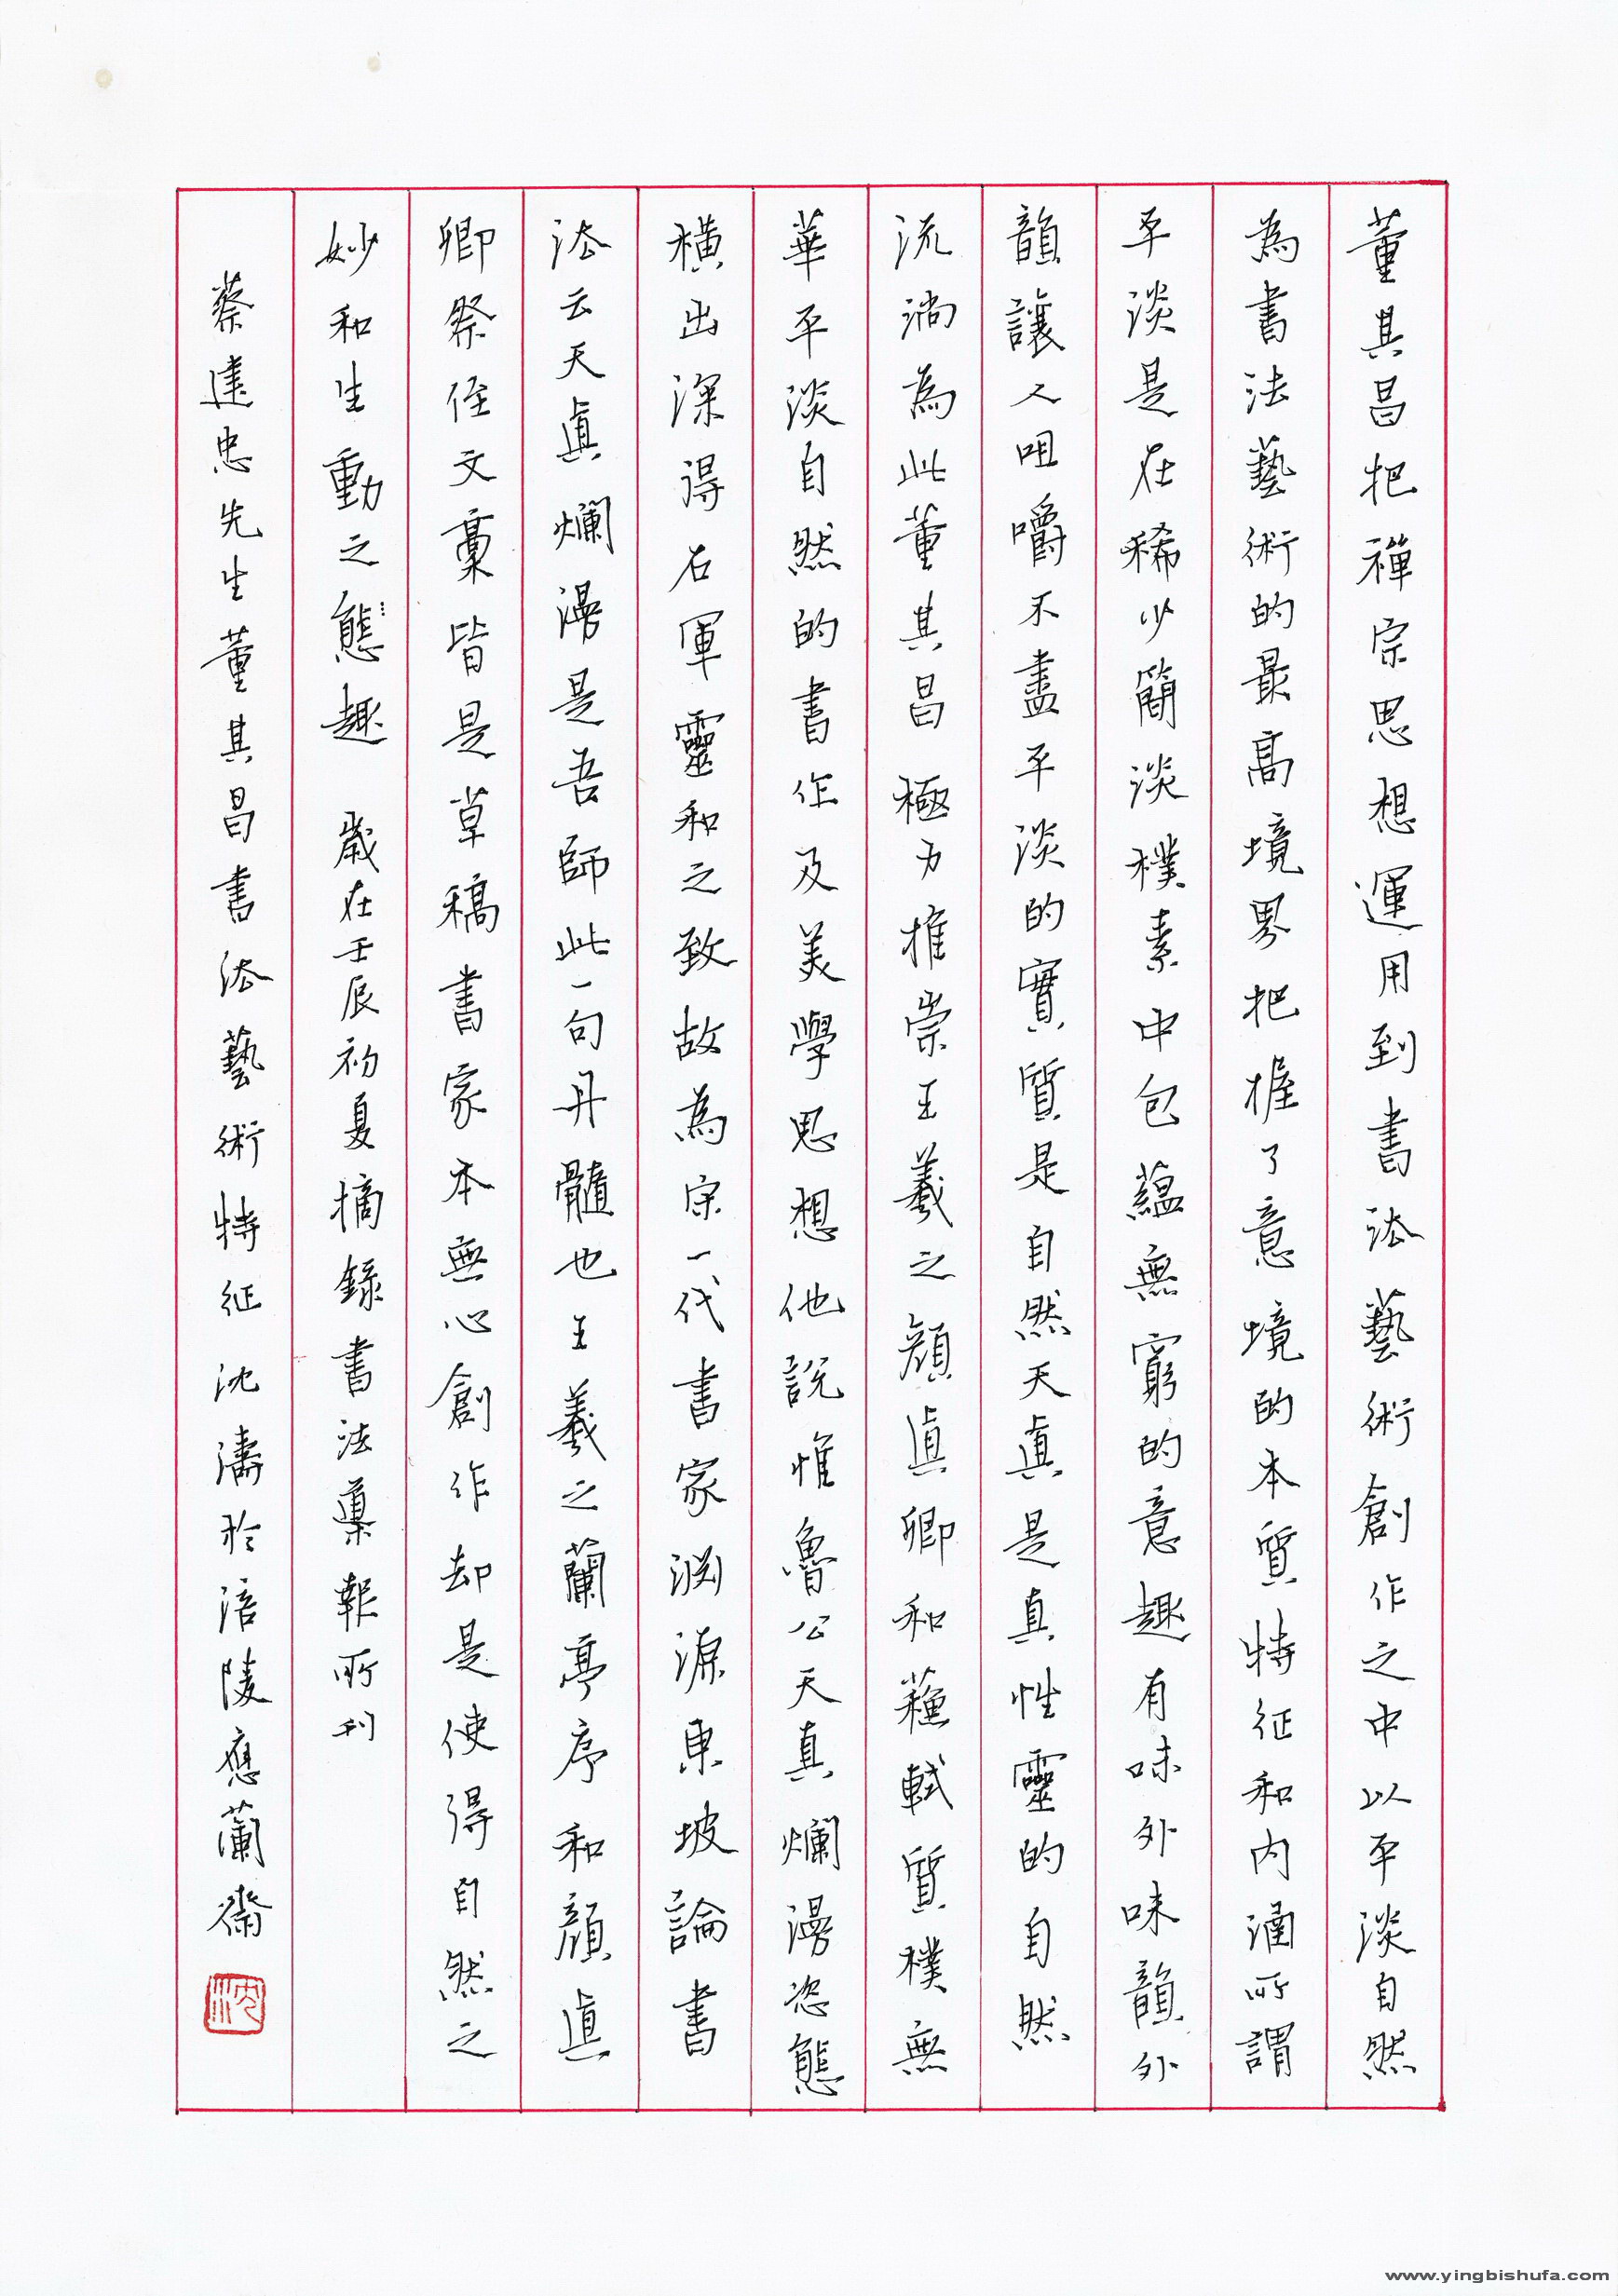 董其昌把禪宗思想運用到書法藝術創作之中以平淡自然
為書法藝術的最高境界把握了意境的本質特征和内涵所謂
平淡是在稀少簡淡樸素中包藴無窮的意趣有味外味韻外
韻讓人咀嚼不盡平淡的實質是自然天真是真性靈的自然
流淌為此董其昌極力推崇王羲之顔真卿和蘇軾質樸無
華平淡自然的書作及美學思想他説惟魯公天真爛漫恣態
横出深得右軍靈和之致故為宋一代書家淵源東坡論書
法云天真爛漫是吾師此一句丹髓也王羲之蘭亭序和顔真
卿祭侄文稾皆是草稿書家本無心創作却是使得自然之
妙和生動之態趣 歲在壬辰初夏摘錄書法導報所刊
蔡達忠先生董其昌書法藝術特征 沈濤於涪陵應蘭齋
沈
www.yingbishufa.com